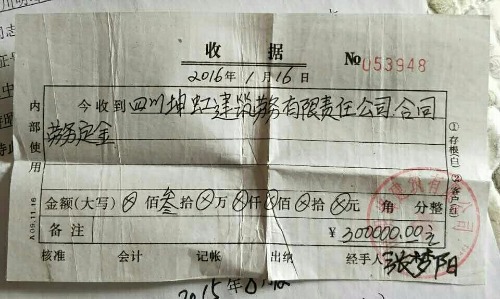 收 据
No 053948
2016年1月16日
今收到四川坤虹建筑劳务有限责任公司合同
劳务定金
内部使用
①存根(白) ②客户(红)
金额(大写) ⊗佰叁拾⊗万⊗仟⊗佰⊗拾⊗元 角 分整
备 注
¥300000.00元
A 09.11.16
核准 会计 记帐 出纳 经手人 张梦阳
2015年